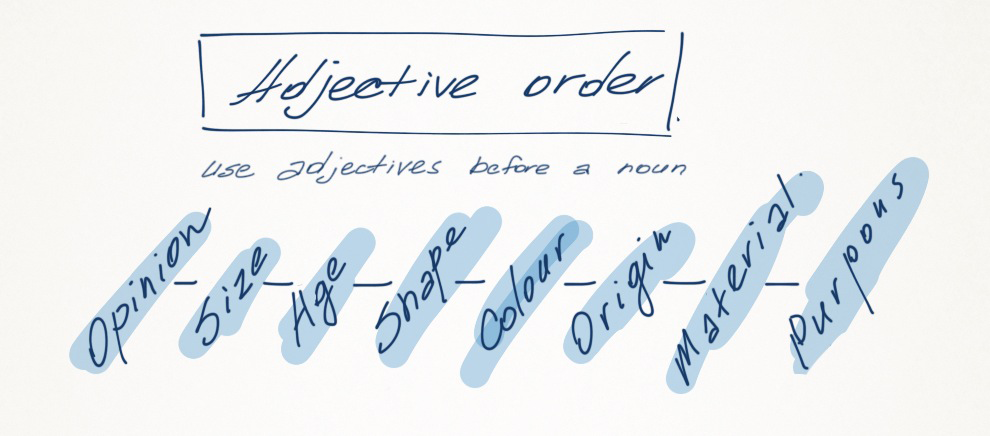 Adjective order
use adjectives before a noun
Opinion – Size – Age – Shape – Colour – Origin – Material – Purpous